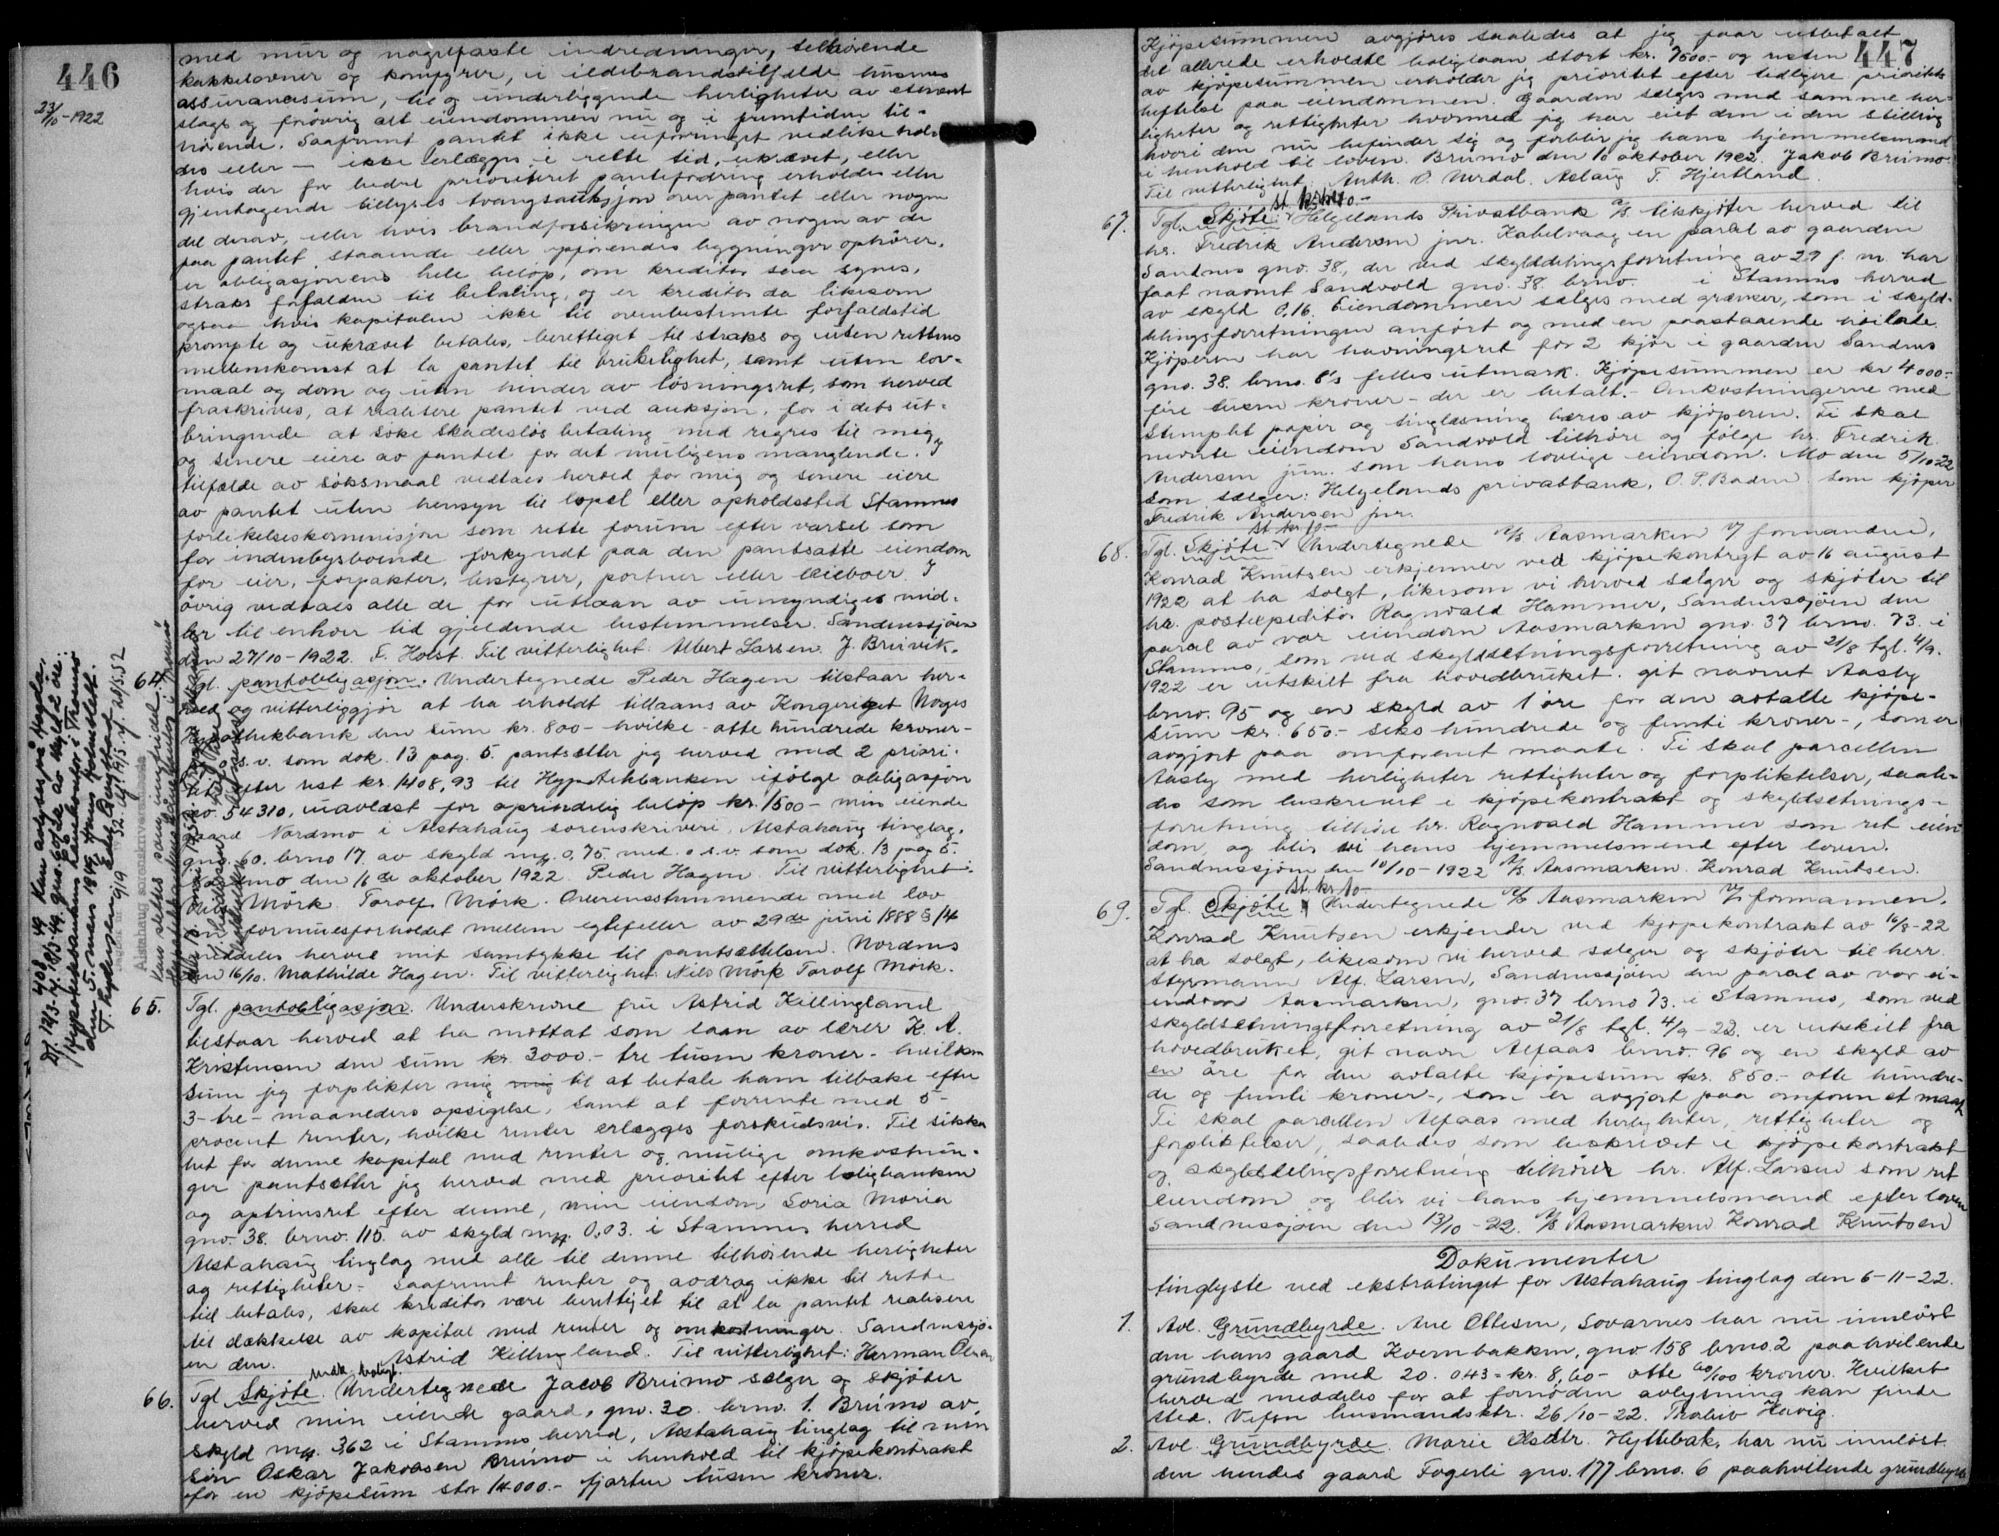 446
23/10-1922
med mur og nagelfaste indredninger, tilhørende
kakkelovner og komfyrer, i ildebrandstilfælde husenes
assurancesum, til og underliggende herligheter av ethvert
slags og forøvrig alt eiendommen nu og i fremtiden til-
hørende. Saafremt pantet ikke uforringet vedlikehol-
des eller — ikke erlægges i rette tid, ukrævet, eller
hvis der for bedre prioritert pantefordring erholdes eller
gjentagende tillyses tvangsauksjon over pantet eller nogen
del derav, eller hvis brandforsikringen av nogen av de
paa pantet staaende eller opførendes bygninger ophører,
er obligasjonens hele beløp, om kreditor saa synes,
straks forfalden til betaling, og er kreditor da likesom
ogsaa hvis kapitalen ikke til ovenbestemte forfaldstid
prompte og ukrævet betales, berettiget til straks og uten rettens
mellemkomst at ta pantet til brukelighet, samt uten lov-
maal og dom og uten hinder av løsningsret, som herved
fraskrives, at realisere pantet ved auksjon, for i dets ut-
bringende at søke skadesløs betaling med regres til mig
og senere eiere av pantet for det muligens manglende. I
tilfælde av søksmaal vedtaes herved for mig og senere eiere
av pantet uten hensyn til bopel eller opholdssted Stamnes
forlikelseskommisjon som rette forum efter varsel som
for indenbysboende forkyndt paa den pantsatte eiendom
for eier, forpakter, bestyrer, portner eller leieboer. I
øvrig vedtaes alle de for utlaan av umyndiges mid-
ler til enhver tid gjeldende bestemmelser. Sandnessjøen
den 27/10-1922. F. Holst. Til vitterlighet: Albert Larsen. J. Breivik.
64. Tgl. pantobligasjon. Undertegnede Peder Hagen tilstaar her-
ved og vitterliggjør at ha erholdt tillaans av Kongeriget Norges
Hypothekbank den sum kr. 800 - hvilke - otte hundrede kroner -
o.s.v. som dok. 13 pag. 5. pantsætter jeg herved med 2 priori-
tet efter rest kr. 1408,93 til Hypothekbanken ifølge obligasjon
no. 54310, uavlæst for oprindelig beløp kr. 1500 - min eiende
gaard Nordmo i Alstahaug sorenskriveri, Alstahaug tinglag,
gno. 60. brno 17. av skyld mrk 0,75 med o.s.v. som dok. 13 pag 5.
Nordmo den 16de oktober 1922. Peder Hagen. Til vitterlighet:
Nils Mörk. Torolf Mörk. Overensstemmende med lov
om formuesforholdet mellem egtefeller av 29de juni 1888 § 14
meddeles herved mit samtykke til pantsættelsen. Nordmo
den 16/10. Mathilde Hagen. Til vitterlighet: Nils Mörk Torolf Mörk.
65. Tgl. pantobligasjon. Underskrevne fru Astrid Killingland
tilstaar herved at ha mottat som laan av lærer K. A.
Kristensen den sum kr. 3000.- tre tusen kroner - hvilken
sum jeg forplikter mig mig til at betale ham tilbake efter
3-tre- maaneders opsigelse, samt at forrente med 5-
procent renter, hvilke renter erlægges forskudsvis. Til sikker
het for denne kapital med renter og mulige omkostnin-
ger pantsetter jeg herved med prioritet efter boligbanken
og optrinsret efter denne, min eiendom Soria Moria
gno. 38. brno. 115. av skyld mrk. 0,03. i Stamnes herred
Alstahaug tinglag med alle til denne tilhørende herligheter
og rettigheter - Saafremt renter og avdrag ikke til rette
tid betales, skal kreditor være berettiget til at la pantet realisere
til dækkelse av kapital med renter og omkostninger. Sandnessjø-
en den. Astrid Killingland. Til vitterlighet: Herman Olsen
66. Tgl Skjøte. Undertegnede Jacob Breimo sælger og skjøter
herved min eiende gaard, gno. 30. brno. 1. Breimo av
skyld mrk. 3,62 i Stamnes herred, Alstahaug tinglag til min
søn Oskar Jakobsen Breimo i henhold til kjøpekontrakt
for en kjøpesum stor 14000.- fjorten tusen kroner.
447
Kjøpesummen avgjøres saaledes at jeg faar utbetalt
det allerede erholdte boliglaan stort kr. 7500.- og resten
av kjøpesummen erholder jeg prioritet efter tidligere prioritets
heftelse paa eiendommen. Gaarden sælges med samme her-
ligheter og rettigheter hvormed jeg har eiet den i den stilling
hvori den nu befinder sig og forblir jeg hans hjemmelsmand
i henhold til loven. Breimo den 16 oktober 1922. Jakob Breimo
Til vitterlighet. Anth. O. Nerdal. Aslaug T. Hjertland.
67. Tgl. Skjøte. Helgelands Privatbank A/S tilskjøter herved til
hr. Fredrik Andersen jnr. Kabelvaag en parsel av gaarden
Sandnes gno. 38, der ved skylddelingsforretning av 29 f. m. har
faat navnet Sandvold gno. 38 brno. i Stamnes herred
av skyld 0,16. Eiendommen sælges med grænser, som i skyld-
delingsforretningen anført og med en paastaaende høilade.
Kjøperen har havningsret for 2 kjør i gaarden Sandnes
gno. 38. brno. 8's felles utmark. Kjøpesummen er kr 4000.-
fire tusen kroner - der er betalt. Omkostningerne med
stemplet papir og tinglæsning bæres av kjøperen. Ti skal
nævnte eiendom Sandvold tilhøre og følge hr. Fredrik
Andersen jun. som hans lovlige eiendom. Mo den 5/10-22
Som sælger: Helgelands privatbank, O. P. Baden. Som kjøper
Fredrik Andersen jnr.
st kr 10.-
68. Tgl. Skjøte. Undertegnede A/S Aasmarken v/ formanden,
Konrad Knutsen erkjenner ved kjøpekontrakt av 16 august
1922 at ha solgt, likesom vi herved sælger og skjøter til
hr. postexpeditør Ragnvald Hammer, Sandnessjøen den
parsel av vor eiendom Aasmarken gno. 37 brno. 73. i
Stamnes, som ved skyldsetningsforretning av 21/8 tgl. 4/9.
1922 er utskilt fra hovedbruket. git navnet Aasby
brno. 95 og en skyld av 1 øre for den avtalte kjøpe-
sum kr. 650.- seks hundrede og femti kroner -, som er
avgjort paa omforenet maate. Ti skal parcellen
Aasby med herligheter rettigheter og forpliktelser, saale-
des som beskrevet i kjøpekontrakt og skyldsetnings-
forretning tilhøre hr. Ragnvald Hammer som ret eien
dom, og blir vi hans hjemmelsmend efter loven.
Sandnessjøen den 10/10-1922 A/S Aasmarken. Konrad Knutsen.
st. kr. 10-
69. Tgl. Skjøte. Undertegnede A/S Aasmarken v/ formannen.
Konrad Knutsen erkjender ved kjøpekontrakt av 16/8-22
at ha solgt, likesom vi herved sælger og skjøter til herr
Styrmann Alf. Larsen, Sandnessjøen den parsel av vor ei-
endom Aasmarken, gno. 37 brno 73. i Stamnes, som ved
skyldsetningsforretning av 21/8 tgl. 4/9-22. er utskilt fra
hovedbruket, git navn Alfaas brno. 96 og en skyld av
en öre for den avtalte kjøpesum kr. 850.- otte hundre-
de og femti kroner-, som er avgjort paa omforenet maate
Ti skal parcellen Alfaas med herligheter, rettigheter og
forpliktelser, saaledes som beskrevet i kjøpekontrakt
og skylddelingsforretning tilhører hr. Alf. Larsen som ret
eiendom og blir vi hans hjemmelsmand efter loven
Sandnessjøen den 13/10-22. A/S Aasmarken Konrad Knutsen
Dokumenter
tinglyste ved ekstratinget for Alstahaug tinglag den 6-11-22.
1. Avl. Grundbyrde. Arne Ottesen, Sovarnes har nu innløst
den hans gaard Kvernbakken, gno 158 brno 2 paahvilende
grundbyrde med 20. 043 = kr. 8,60 - otte 60/100 kroner. Hvilket
herved meddeles for at fornøden avlysning kan finde
sted. Vefsn husmandsktr. 26/10-22. Thoralv Hervig.
2. Avl. Grundbyrde. Marie Olsdtr. Hyttebak, har nu innløst
den hendes gaard Fagerli gno. 177 brno. 6 paahvilende grundbyrde